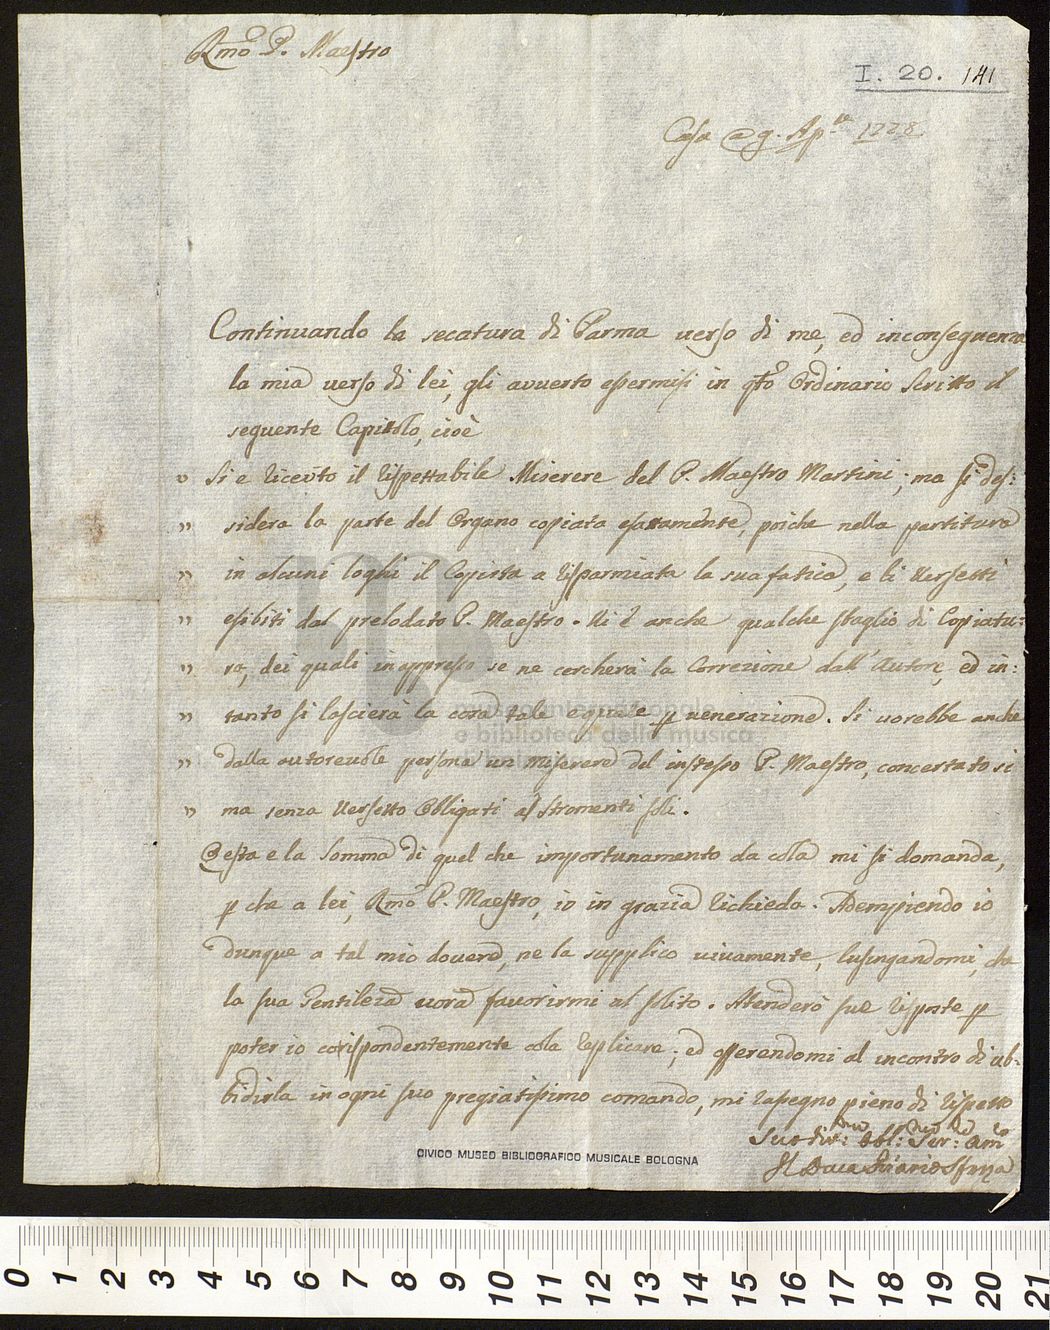 Rmo P. Maestro
I. 20. 141
Casa 9. Ap.le 1778
Continuando la secatura di Parma verso di me, ed inconseguenza
la mia verso di lei, gli avverto essermisi in qto Ordinario Scritto il
seguente Capitolo, cioè
" Si e riceuto il rispettabile Miserere del P. Maestro Martini; ma si des:
" sidera la parte del Organo copiata esattamente, poiche nella partitura
" in alcuni loghi il Copista a risparmiata la sua fatica, e li versetti
" esibiti dal prelodato P. Maestro. Vi è anche qualche sbaglio di Copiatu:
" ra, dei quali inappresso se ne cercherà la Correzione dall'Autore, ed in:
" tanto si lascierà la cosa tale e quale p venerazione. Si vorebbe anche
" dalla autorevole persona un Miserere del istesso P. Maestro, concertato si
" ma senza Versetto Obligati a Stromenti soli.
Questa e la Somma di quel che importunamento da cola mi si domanda,
p che a lei, Rmo P. Maestro, io in grazia richieda. Adempiendo io
dunque a tal mio dovere, ne la supplico vivamente, lusingandomi, che
la sua Gentileza vorà favorirmi al solito. Attenderò sue risposte p
poter io corispondentemente cola replicare; ed offerendomi al incontro di ub:
bidirla in ogni suo pregiatissimo comando, mi rasegno pieno di rispetto
Suo Div:mo Obbl:mo Ser:re Amo
Il Duca Riario Sforza
museo internazionale
e biblioteca della musica
CIVICO MUSEO BIBLIOGRAFICO MUSICALE BOLOGNA
0 1 2 3 4 5 6 7 8 9 10 11 12 13 14 15 16 17 18 19 20 21